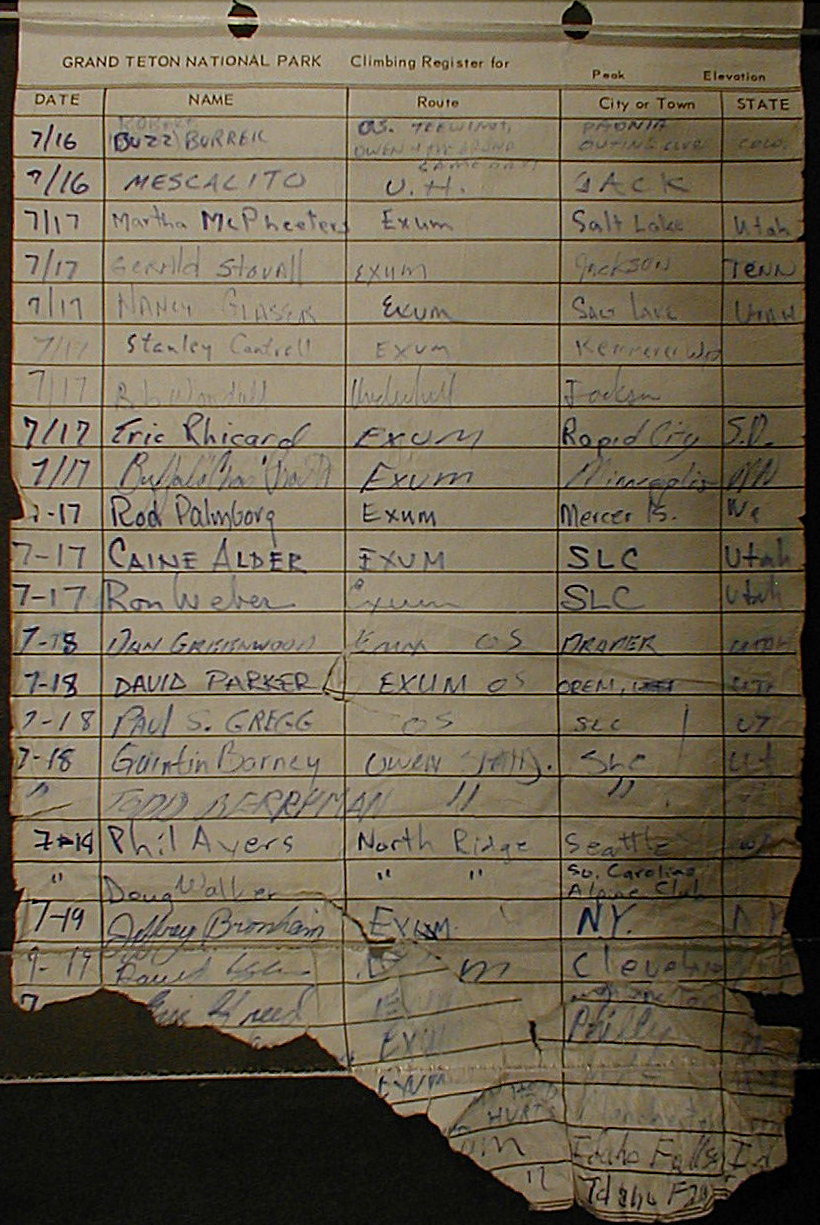 GRAND TETON NATIONAL PARK Climbing Register for
Peak Elevation
DATE NAME Route City or Town STATE
7/16 BUZZ BURRELL OS. TEEWINOT, PAONIA
OWEN + THE GRAND OUTING CLUB COLO.
7/16 MESCALITO U.H. JACK
7/17 Martha McPheeters Exum Salt Lake Utah
7/17 Gerald Stovall EXUM Jackson TENN
7/17 NANCY GLASER Exum Salt Lake Utah
7/17 Stanley Cantrell Exum Kemmerer Wyo
7/17 Bob Underhill Jackson
7/17 Eric Rhicard EXUM Rapid City S.D.
7/17 Buffalo Exum Minneapolis MN
7-17 Rod Palmborg Exum Mercer Is. Wa
7-17 CAINE ALDER EXUM SLC Utah
7-17 Ron Weber Exum SLC Utah
7-18 DAN GREENWOOD Exum OS DRAPER UTAH
7-18 DAVID PARKER EXUM OS OREM, UT
7-18 PAUL S. GREGG OS SLC UT
7-18 Quintin Barney OWEN SPALD. SLC Ut
" TODD BERRYMAN " "
7-18 Phil Ayers North Ridge Seattle WA
" Doug Walker " " So. Carolina
Alpine Club
7-19 Jeffrey Bronheim Exum N.Y. N.Y.
7-19 David m Cleveland
7 Exum
Exum Philly
Exum
HURTS Manchester
um Idaho Falls Id
" Idaho Falls